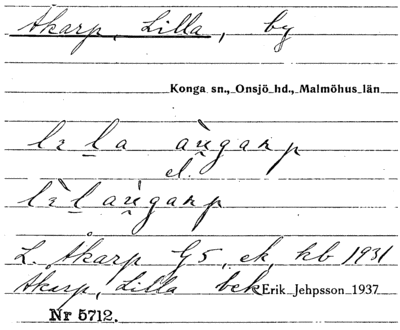 Åkarp, Lilla, by
Konga sn., Onsjö hd., Malmöhus län
lɪla àu̯garp
el.
lɪ̀làu̯garp
L. Åkarp G5, ek, kb 1931
Åkarp, Lilla bek
Erik Jehpsson 1937
Nr 5712.